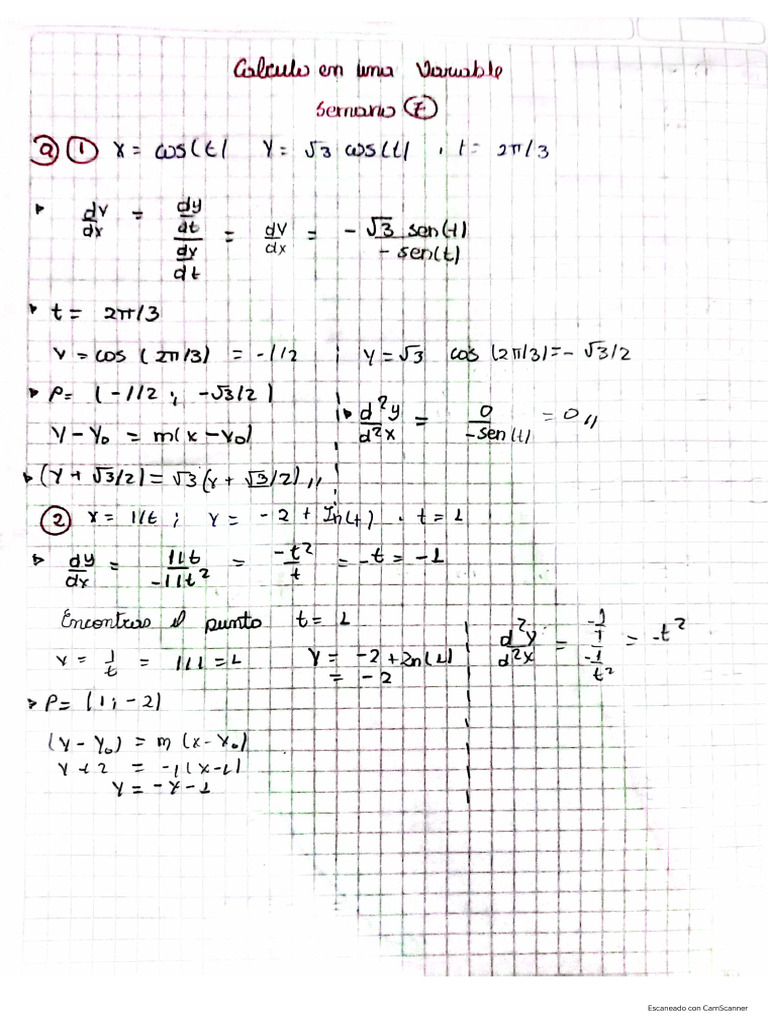 Calculo en una Variable
Semana 7
a 1 x = cos(t) y = √3 cos(t) , t = 2π/3
dy/dx = (dy/dt)/(dy/dt) = dy/dx = -√3 sen(t) / -sen(t)
t = 2π/3
x = cos (2π/3) = -1/2 ; y = √3 cos (2π/3) = -√3/2
P = (-1/2 ; -√3/2)
d²y/d²x = 0/-sen(t) = 0,,
y - y₀ = m(x - x₀)
(y + √3/2) = √3 (x + √3/2),,
2 x = 1/t ; y = -2 + ln(t) , t = 1
dy/dx = 1/t / -1/t² = -t²/t = -t = -1
Encontras el punto t = 1
x = 1/t = 1/1 = 1 y = -2 + ln(1)
= -2
d²y/d²x = -1/1 / -1/t² = -t²
P = (1 ; -2)
(y - y₀) = m (x - x₀)
y + 2 = -1(x - 1)
y = -x - 1
Escaneado con CamScanner